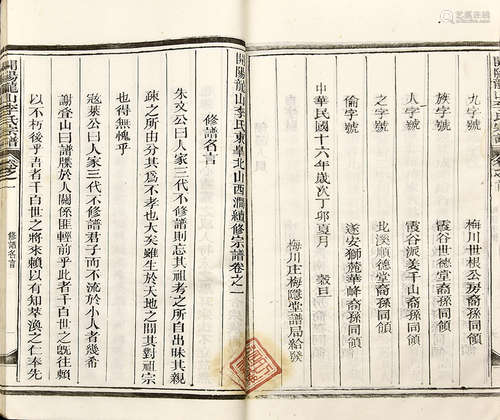 九字號　梅川世根公房裔孫同領
族字號　霞谷世德堂裔孫同領
人字號　霞谷派姜千山裔孫同領
之字號　北溪順德堂裔孫同領
倫字號　遂安獅麓華峰裔孫同領
中華民國十六年歲次丁卯夏月　穀旦
梅川庄梅隱堂譜局給發
開陽龍山李氏東皐北山西澗續修宗譜卷之一
修譜名言
朱文公曰人家三代不修譜則忘其祖考之所自出昧其親
疎之所由分其爲不孝也大矣雖生於天地之間其對祖宗
也得無愧乎
寇萊公曰人家三代不修譜君子而不流於小人者幾希
謝叠山曰譜牒於人關係匪輕前乎此者千百世之旣往賴
以不朽後乎吾者千百世之將來賴以有知萃渙之仁奉先
開陽龍山李氏宗譜
卷之一
修譜名言